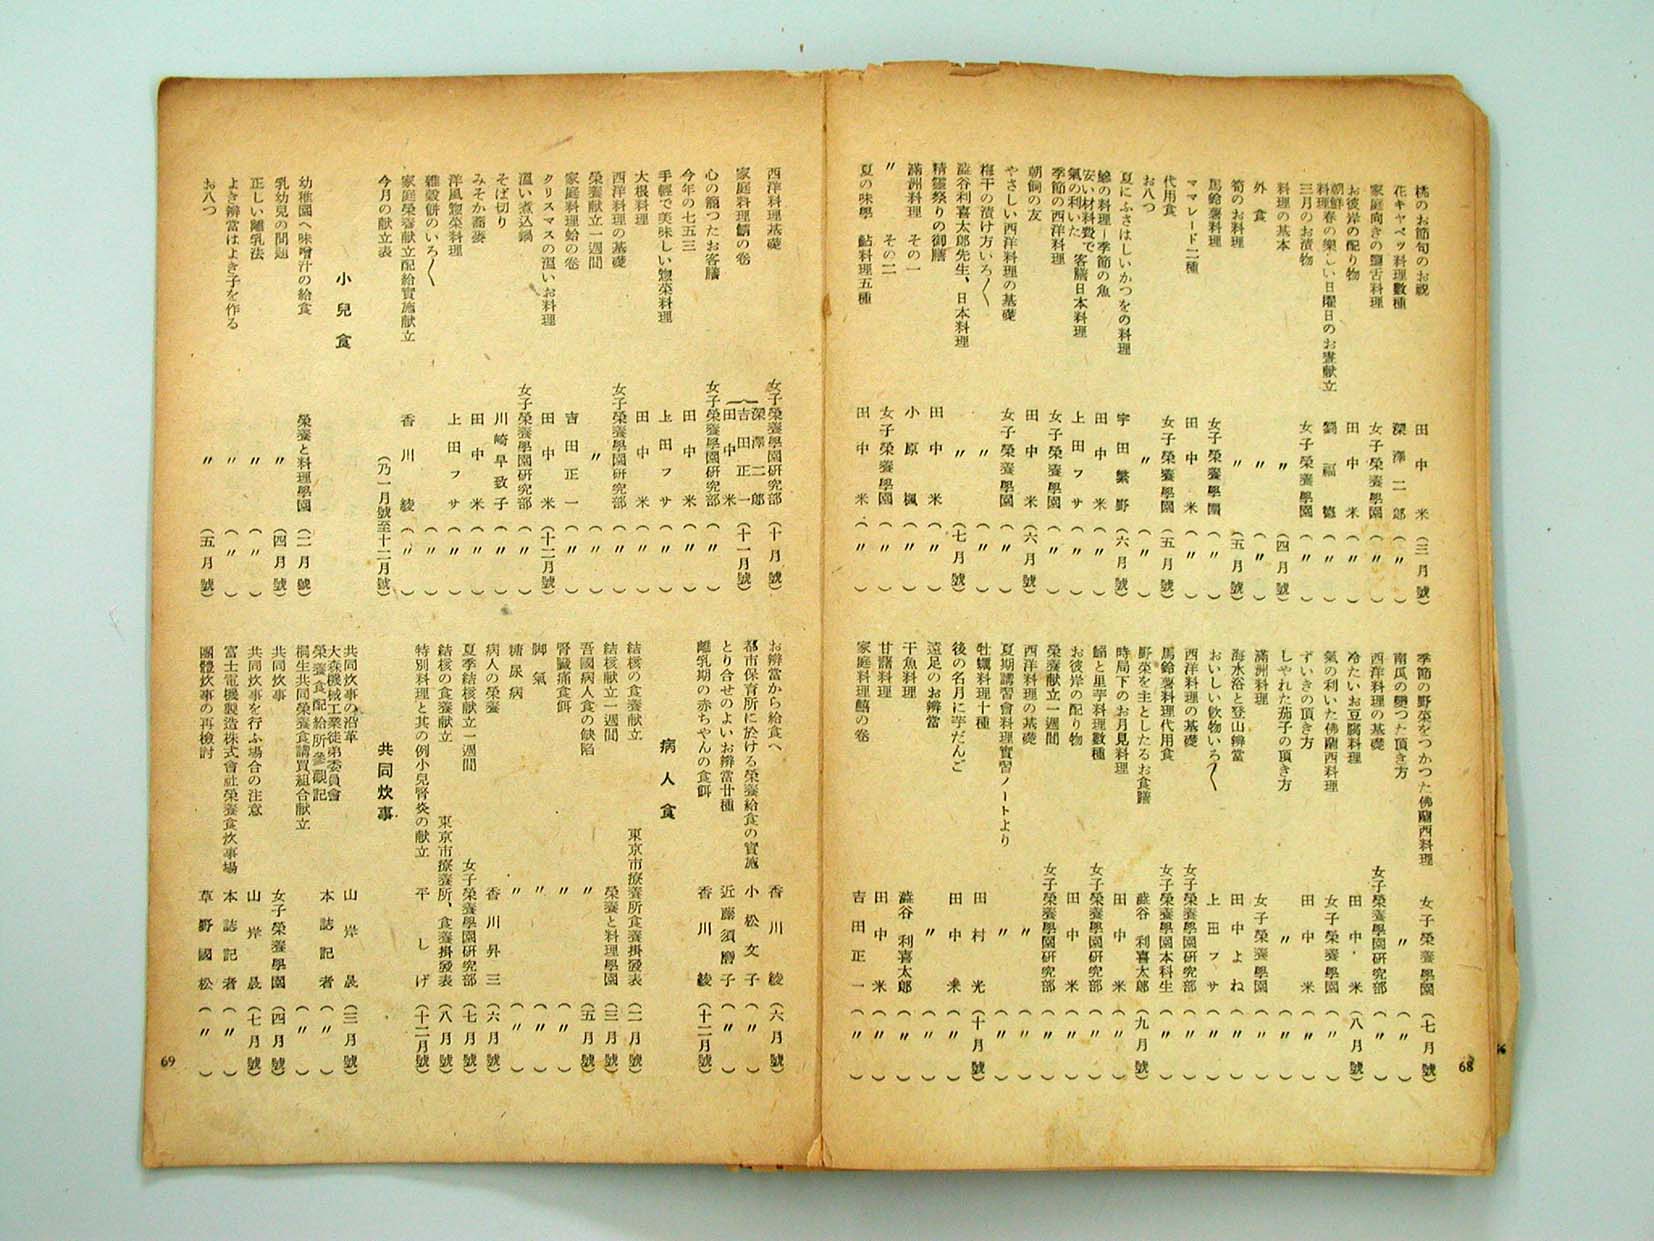 桃のお節句のお祝　田中米（三月號）
花キャベツ料理數種　深澤二郎（〃）
家庭向きの鹽舌料理　女子榮養學園（〃）
お彼岸の配り物　田中米（〃）
朝鮮料理　春の樂しい日曜日のお晝献立　劉福德（〃）
三月のお漬物　女子榮養學園（〃）
料理の基本　〃（四月號）
外食　〃（〃）
筍のお料理　〃（五月號）
馬鈴薯料理　女子榮養學園（〃）
ママレード二種　田中米（〃）
代用食　女子榮養學園（五月號）
お八つ　〃（〃）
夏にふさはしいかつをの料理　宇田繁野（六月號）
鱠の料理―季節の魚　田中米（〃）
安い材料費で氣の利いた客膳日本料理　上田フサ（〃）
季節の西洋料理　女子榮養學園（〃）
朝餉の友　田中米（六月號）
やさしい西洋料理の基礎　女子榮養學園（〃）
梅干の漬け方いろ〱　〃（〃）
澁谷利喜太郎先生、日本料理　〃（七月號）
精靈祭りの御膳　田中米（〃）
滿洲料理　その一　小原楓（〃）
〃　その二　女子榮養學園（〃）
夏の味學　鮎料理五種　田中米（〃）
季節の野菜をつかつた佛蘭西料理　女子榮養學園（七月號）
南瓜の變つた頂き方　〃（〃）
西洋料理の基礎　女子榮養學園研究部（〃）
冷たいお豆腐料理　田中米（八月號）
氣の利いた佛蘭西料理　女子榮養學園（〃）
ずいきの頂き方　田中米（〃）
しやれた茄子の頂き方　〃（〃）
滿洲料理　女子榮養學園（〃）
海水浴と登山辨當　田中よね（〃）
おいしい飮物いろ〱　上田フサ（〃）
西洋料理の基礎　女子榮養學園研究部（〃）
馬鈴薯料理代用食　女子榮養學園本科生（〃）
野菜を主としたるお食膳　澁谷利喜太郎（九月號）
時局下のお月見料理　田中米（〃）
鰯と里芋料理數種　女子榮養學園研究部（〃）
お彼岸の配り物　田中米（〃）
榮養献立一週間　女子榮養學園研究部（〃）
西洋料理の基礎　〃（〃）
夏期講習會料理實習ノートより　〃（〃）
牡蠣料理十種　田村光（十月號）
後の名月に芋だんご　田中米（〃）
遠足のお辨當　〃（〃）
干魚料理　澁谷利喜太郎（〃）
甘諸料理　田中米（〃）
家庭料理鯔の卷　吉田正一（〃）
68
西洋料理基礎　女子榮養學園研究部（十月號）
家庭料理鯖の卷　深澤二郎　吉田正一　田中米（十一月號）
心の籠つたお客膳　女子榮養學園研究部（〃）
今年の七五三　田中米（〃）
手輕で美味しい惣菜料理　上田フサ（〃）
大根料理　田中米（〃）
西洋料理の基礎　女子榮養學園研究部（〃）
榮養献立一週間　〃（〃）
家庭料理蛤の卷　吉田正一（〃）
クリスマスの溫いお料理　田中米（十二月號）
溫い煮込鍋　女子榮養學園研究部（〃）
そば切り　川崎早致子（〃）
みそか蕎麥　田中米（〃）
洋風惣菜料理　上田フサ（〃）
雜穀餠のいろ〱　〃（〃）
家庭榮養献立配給實施献立　香川綾（〃）
今月の献立表　（乃一月號至十二月號）
小兒食
幼稚園へ味噌汁の給食　榮養と料理學園（二月號）
乳幼兒の問題　〃（四月號）
正しい離乳法　〃（〃）
よき辨當はよき子を作る　〃（〃）
お八つ　〃（五月號）
お辨當から給食へ　香川綾（六月號）
都市保育所に於ける榮養給食の實施　小松文子（〃）
とり合せのよいお辨當廿種　近藤須磨子（〃）
離乳期の赤ちやんの食餌　香川綾（十二月號）
病人食
結核の食養献立　東京市療養所食養掛發表（二月號）
結核献立一週間　榮養と料理學園（三月號）
吾國病人食の缺陷　〃（五月號）
腎臟痛食餌　〃（〃）
脚氣　〃（〃）
糖尿病　〃（〃）
病人の榮養　香川昇三（六月號）
夏季結核献立一週間　女子榮養學園研究部（七月號）
結核の食養献立　東京市療養所、食養掛發表（八月號）
特別料理と其の例小兒腎炎の献立　平しげ（十二月號）
共同炊事
共同炊事の沿革　山岸晟（三月號）
大森機械工業徒弟委員會榮養食配給所參觀記　本誌記者（〃）
桐生共同榮養食購買組合献立　（〃）
共同炊事　女子榮養學園（四月號）
共同炊事を行ふ場合の注意　山岸晟（七月號）
富士電機製造株式會社榮養食炊事場　本誌記者（〃）
團體炊事の再檢討　草野國松（〃）
69